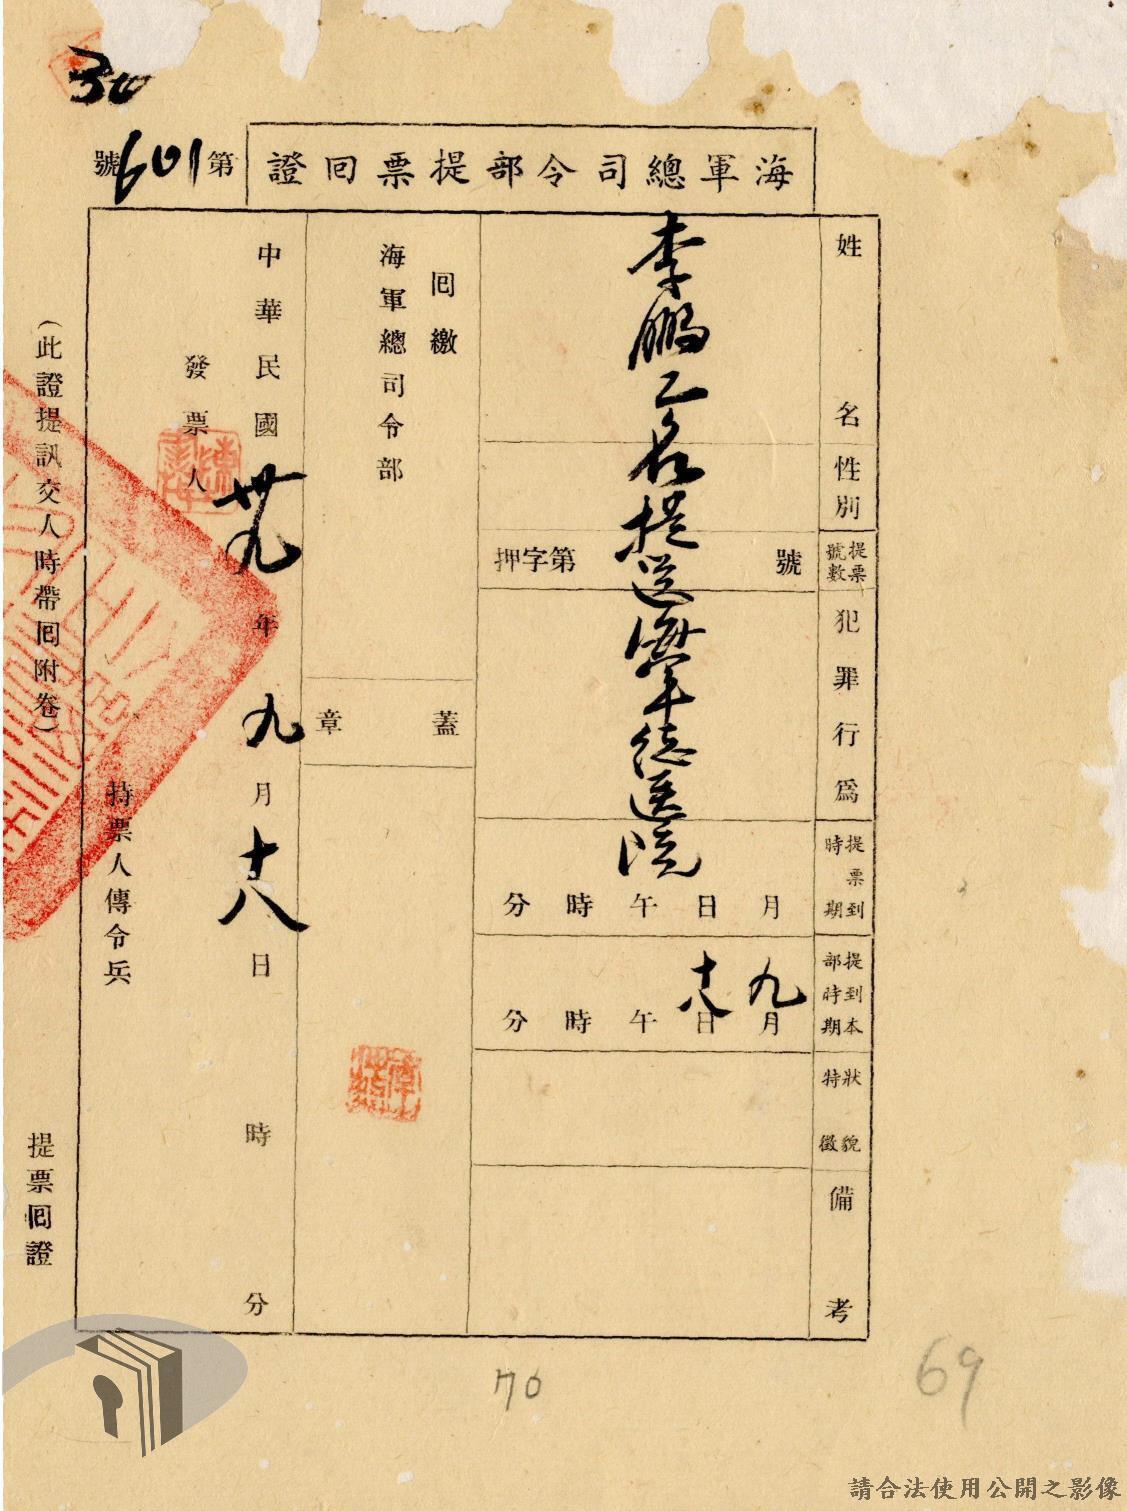 30
海軍總司令部提票回證
第601號
姓名
性別
提票號數
犯罪行為
提票到時期
提到本部時期
狀貌特徵
備考
李鵬二名提送海軍總医院
押字第 號
月 日 午 時 分
九月十八日 午 時 分
回繳
海軍總司令部
蓋章
中華民國卅九年九月十八日 時 分
發票人
持票人傳令兵
(此證提訊交人時帶回附卷)
提票回證
70
69
請合法使用公開之影像